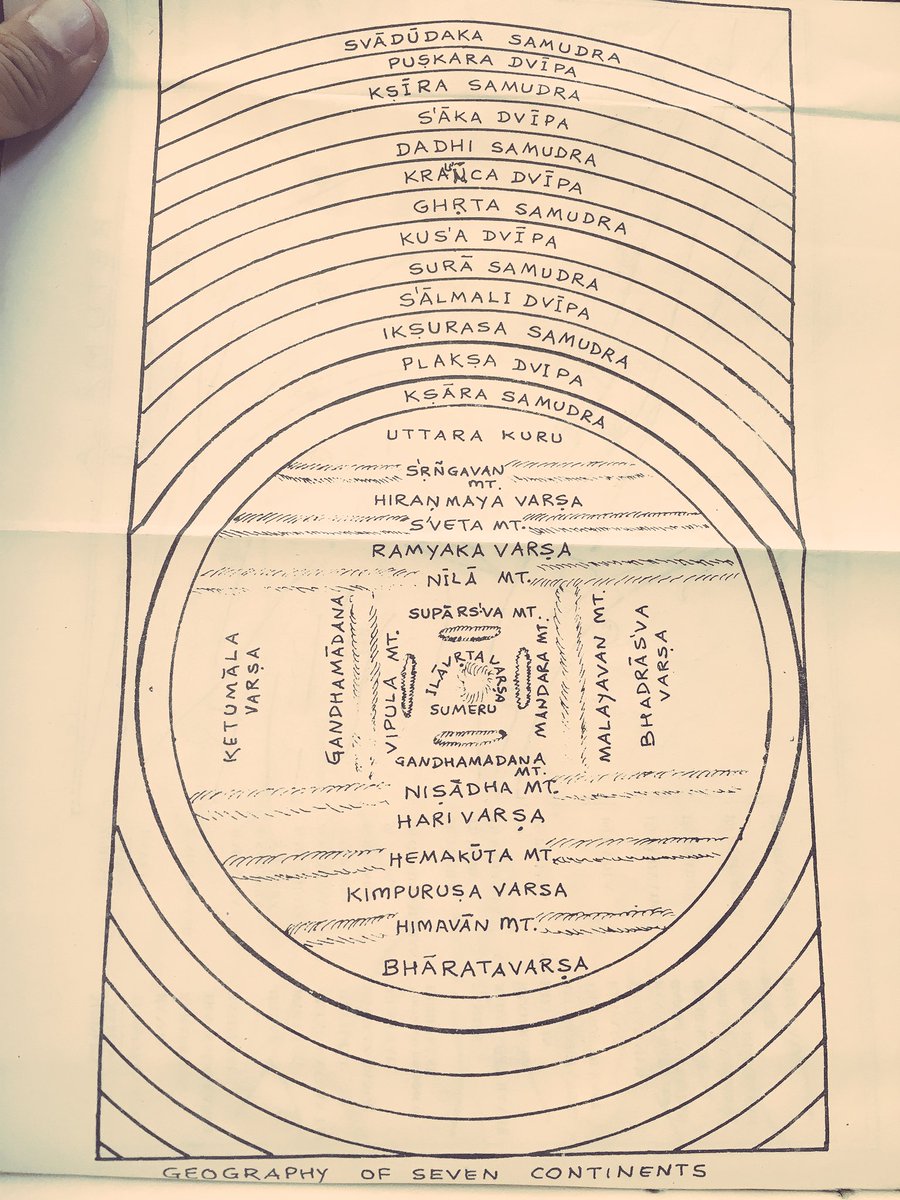 SVĀDŪDAKA SAMUDRA
PUṢKARA DVĪPA
KṢĪRA SAMUDRA
S'ĀKA DVĪPA
DADHI SAMUDRA
DVĪPA
GHṚTA SAMUDRA
KUS'A DVĪPA
SURĀ SAMUDRA
S'ĀLMALI DVĪPA
IKṢURASA SAMUDRA
PLAKṢA DVIPA
KṢĀRA SAMUDRA
UTTARA KURU
S'ṚÑGAVAN
MT.
HIRAṆMAYA VARṢA
S'VETA MT.
RAMYAKA VARṢA
NĪLĀ MT.
KETUMĀLA
VARṢA
GANDHAMĀDANA
VIPULA MT.
SUPĀRS'VA MT.
ILĀVṚTA VARṢA
SUMERU
GANDHAMADANA
MT.
MANDARA MT.
MALAYAVAN MT.
BHADRĀS'VA
VARṢA
NIṢĀDHA MT.
HARI VARṢA
HEMAKŪTA MT.
KIMPURUṢA VARSA
HIMAVĀN MT.
BHĀRATAVARṢA
GEOGRAPHY OF SEVEN CONTINENTS